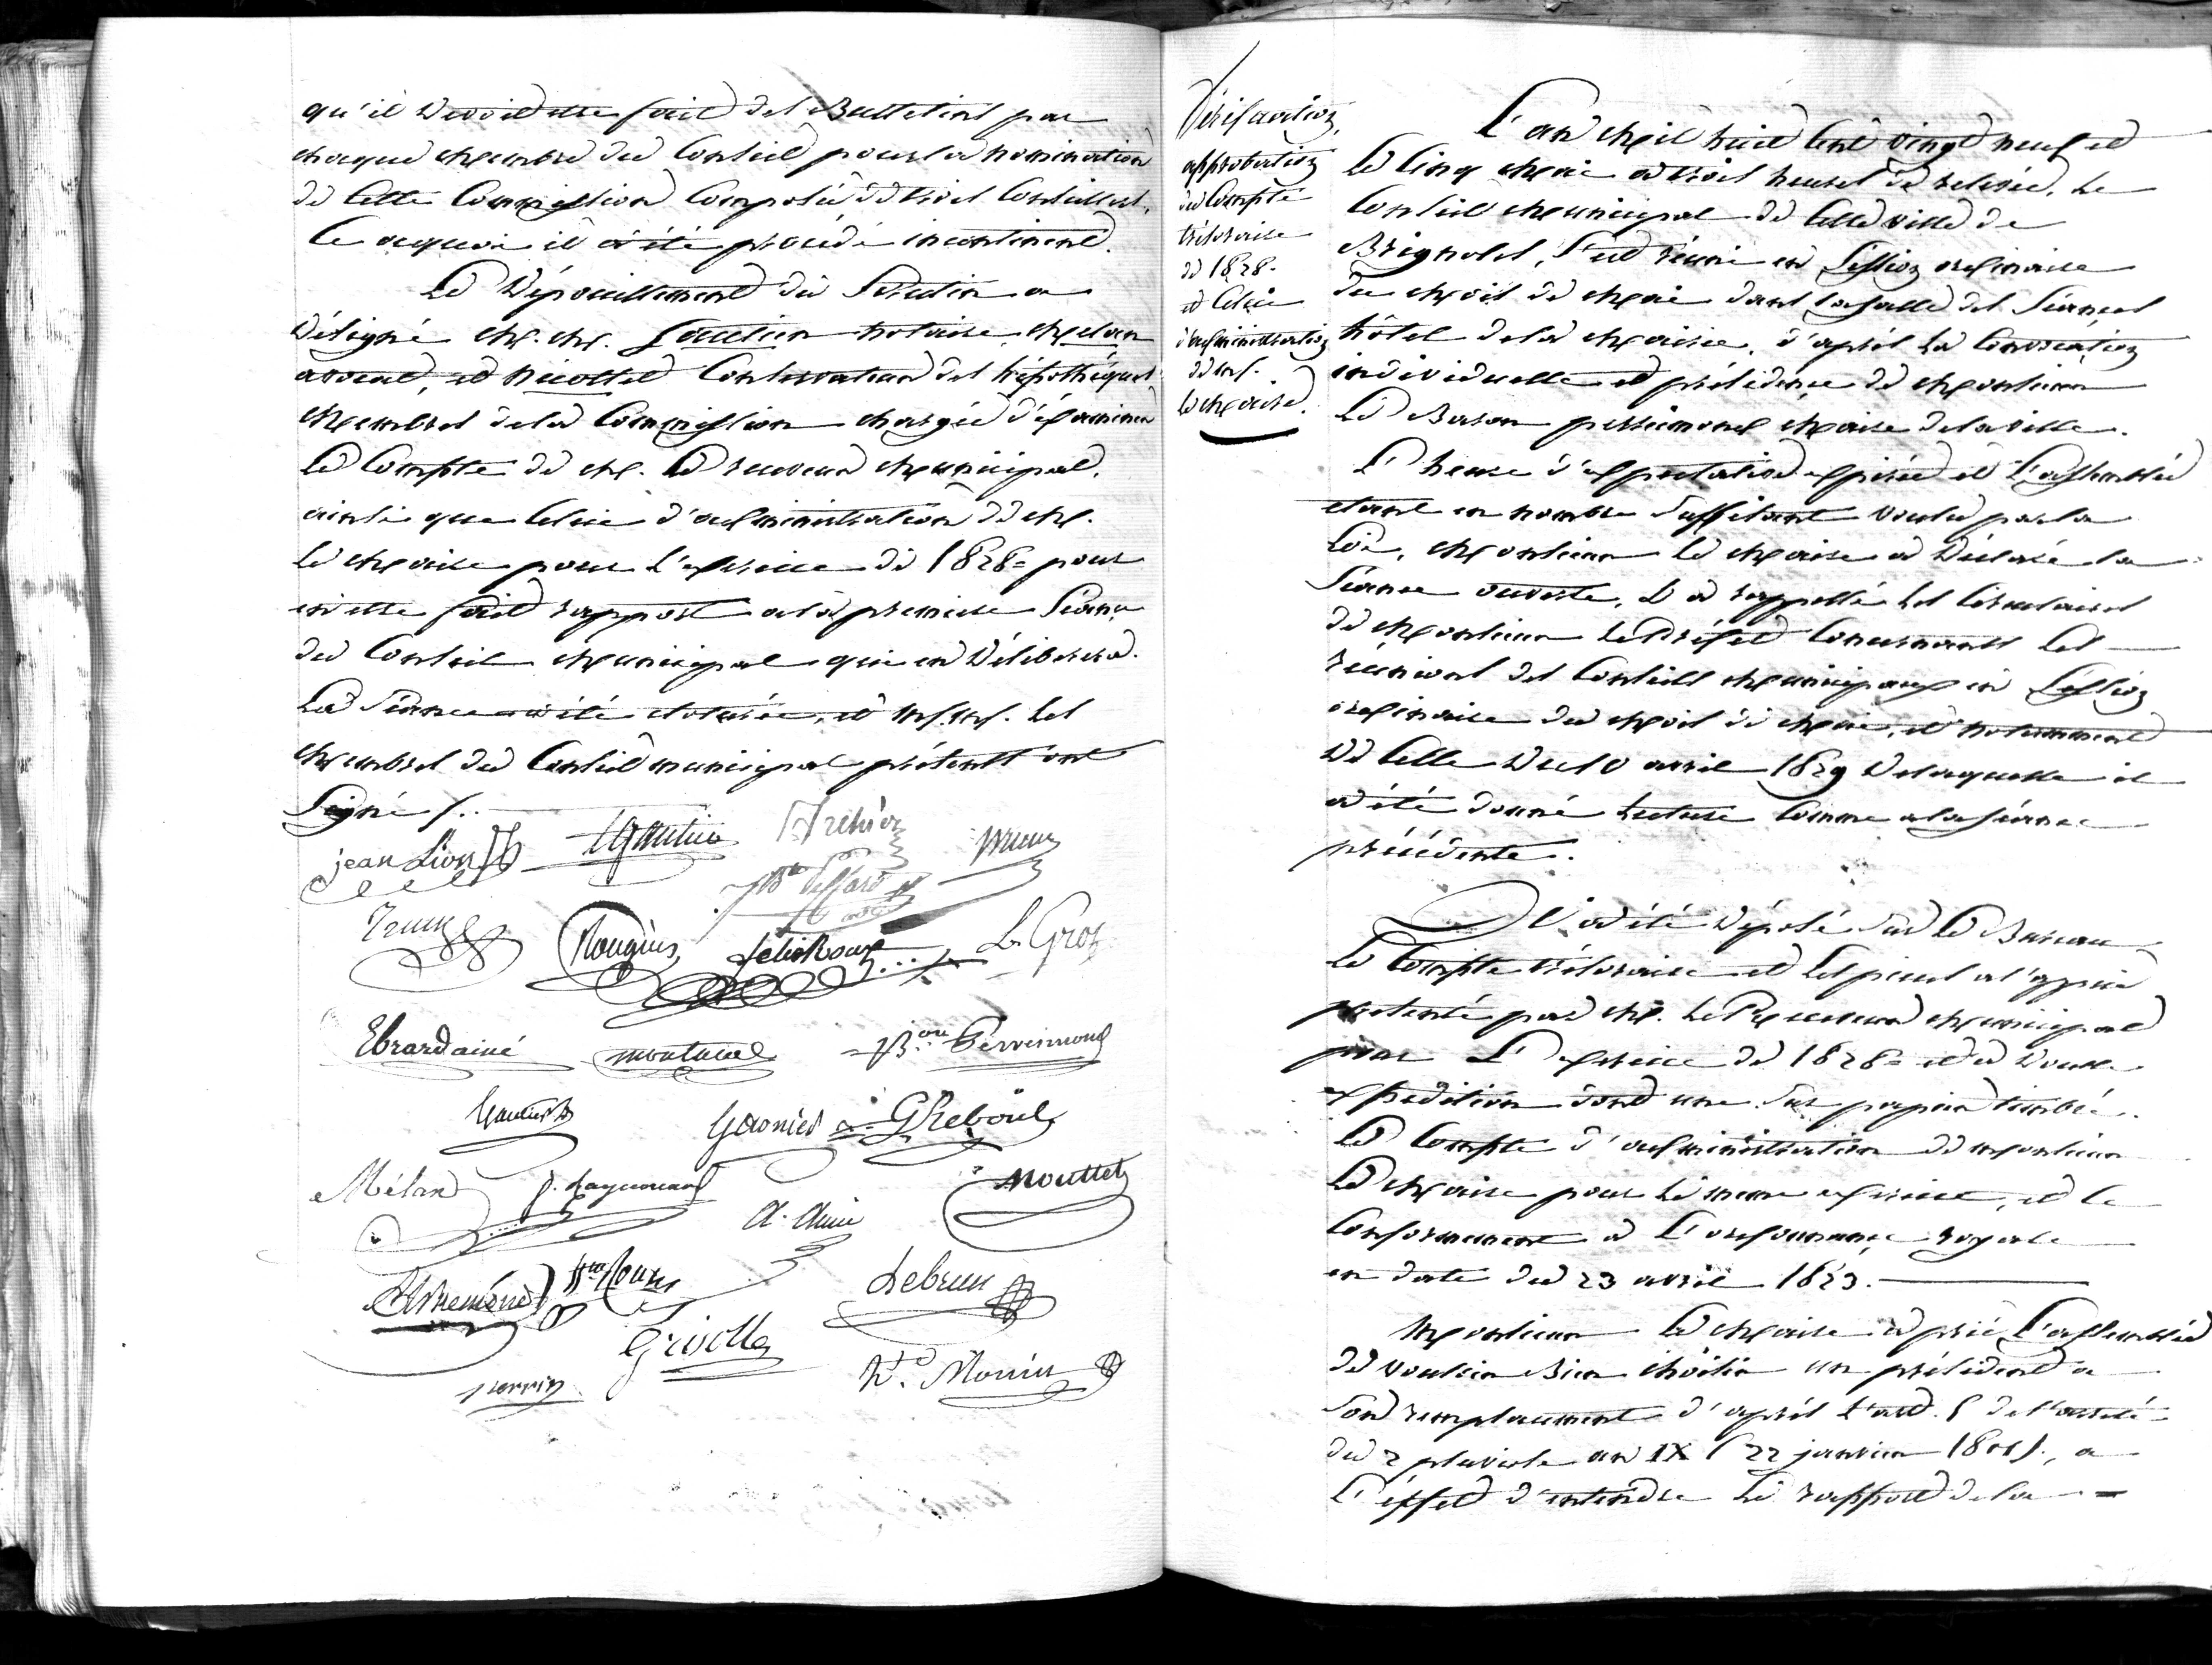 qu'il devoit etre fait des Bulletins par
chaque Membre du Conseil pour la nomination
de cette Commission Composée de trois Conseillers,
Ce aquoi il a été procédé incontinent.
Le Dépouillement du Scrutin a
désigné M. M. Gautier notaire, Melan
avocat, et Nicolle Conservateur des hipothèques
Membres de la Commission chargée d'éxaminer
Le Compte de M. Le receveur Municipal,
ainsi que Celui d'administration de M.
le Maire pour l'exercice de 1828= pour
en etre fait rapport a la premiere Séance
du Conseil Municipal qui en Délibérera.
La Séance a été cloturée, et M. M. les
Membres du Conseil municipal présents ont
Signé /..
jean Lion
Gautier
Brun
Rougiers
felix Roux
L. Gros
Ebrard ainé
Montaud
Bon Perrimond
Gautier
Garnier
G Reboul
Mélan
Mouttet
Lebrun
Grivolle
perrin
Monin
Vérification,
approbation
du Compte
trésoraire
de 1828.
et Celui
d'administration
de M.
le Maire.
L'an Mil huit Cent vingt neuf et
le Cinq Mai a trois heures de relevée, le
Conseil Municipal de Cette ville de
Brignoles, S'est réuni en Session ordinaire
du Mois de Mai dans la salle des Séances
hôtel de la Mairie, d'après la Convocation
individuelle et présidence de Monsieur
Le Baron perrimond Maire de la ville.
L'heure d'expectative expirée et L'assemblée
etant en nombre Suffisant voulu par la
Loi, Monsieur le Maire a Déclaré la
Séance ouverte, Il a rappellé les Circulaires
de Monsieur le Préfet Concernant les
réunions des Conseils Municipaux en Session
ordinaire du Mois de Mai, et notamment
de Celle du 10 avril 1829 de laquelle il
a été donné lecture Comme a la séance
précédente.
Il a été déposé sur Le Bureau
Le Compte trésoraire et les pieces a l'appui
présenté par M. Le Receveur Municipal
pour L'exercice de 1828= et a double
expédition dont une Sur papier timbré.
Le Compte d'administration de Monsieur
Le Maire pour le meme exercice, et Ce
Conformement a L'ordonnance royale
en date du 23 avril 1823.
Monsieur Le Maire a prié L'assemblée
de vouloir Bien choisir un président a
Son remplacement d'après l'art. 5 de l'arreté
du 2 pluviose an IX (22 janvier 1801), a
L'effet d'entendre Le rapport de la